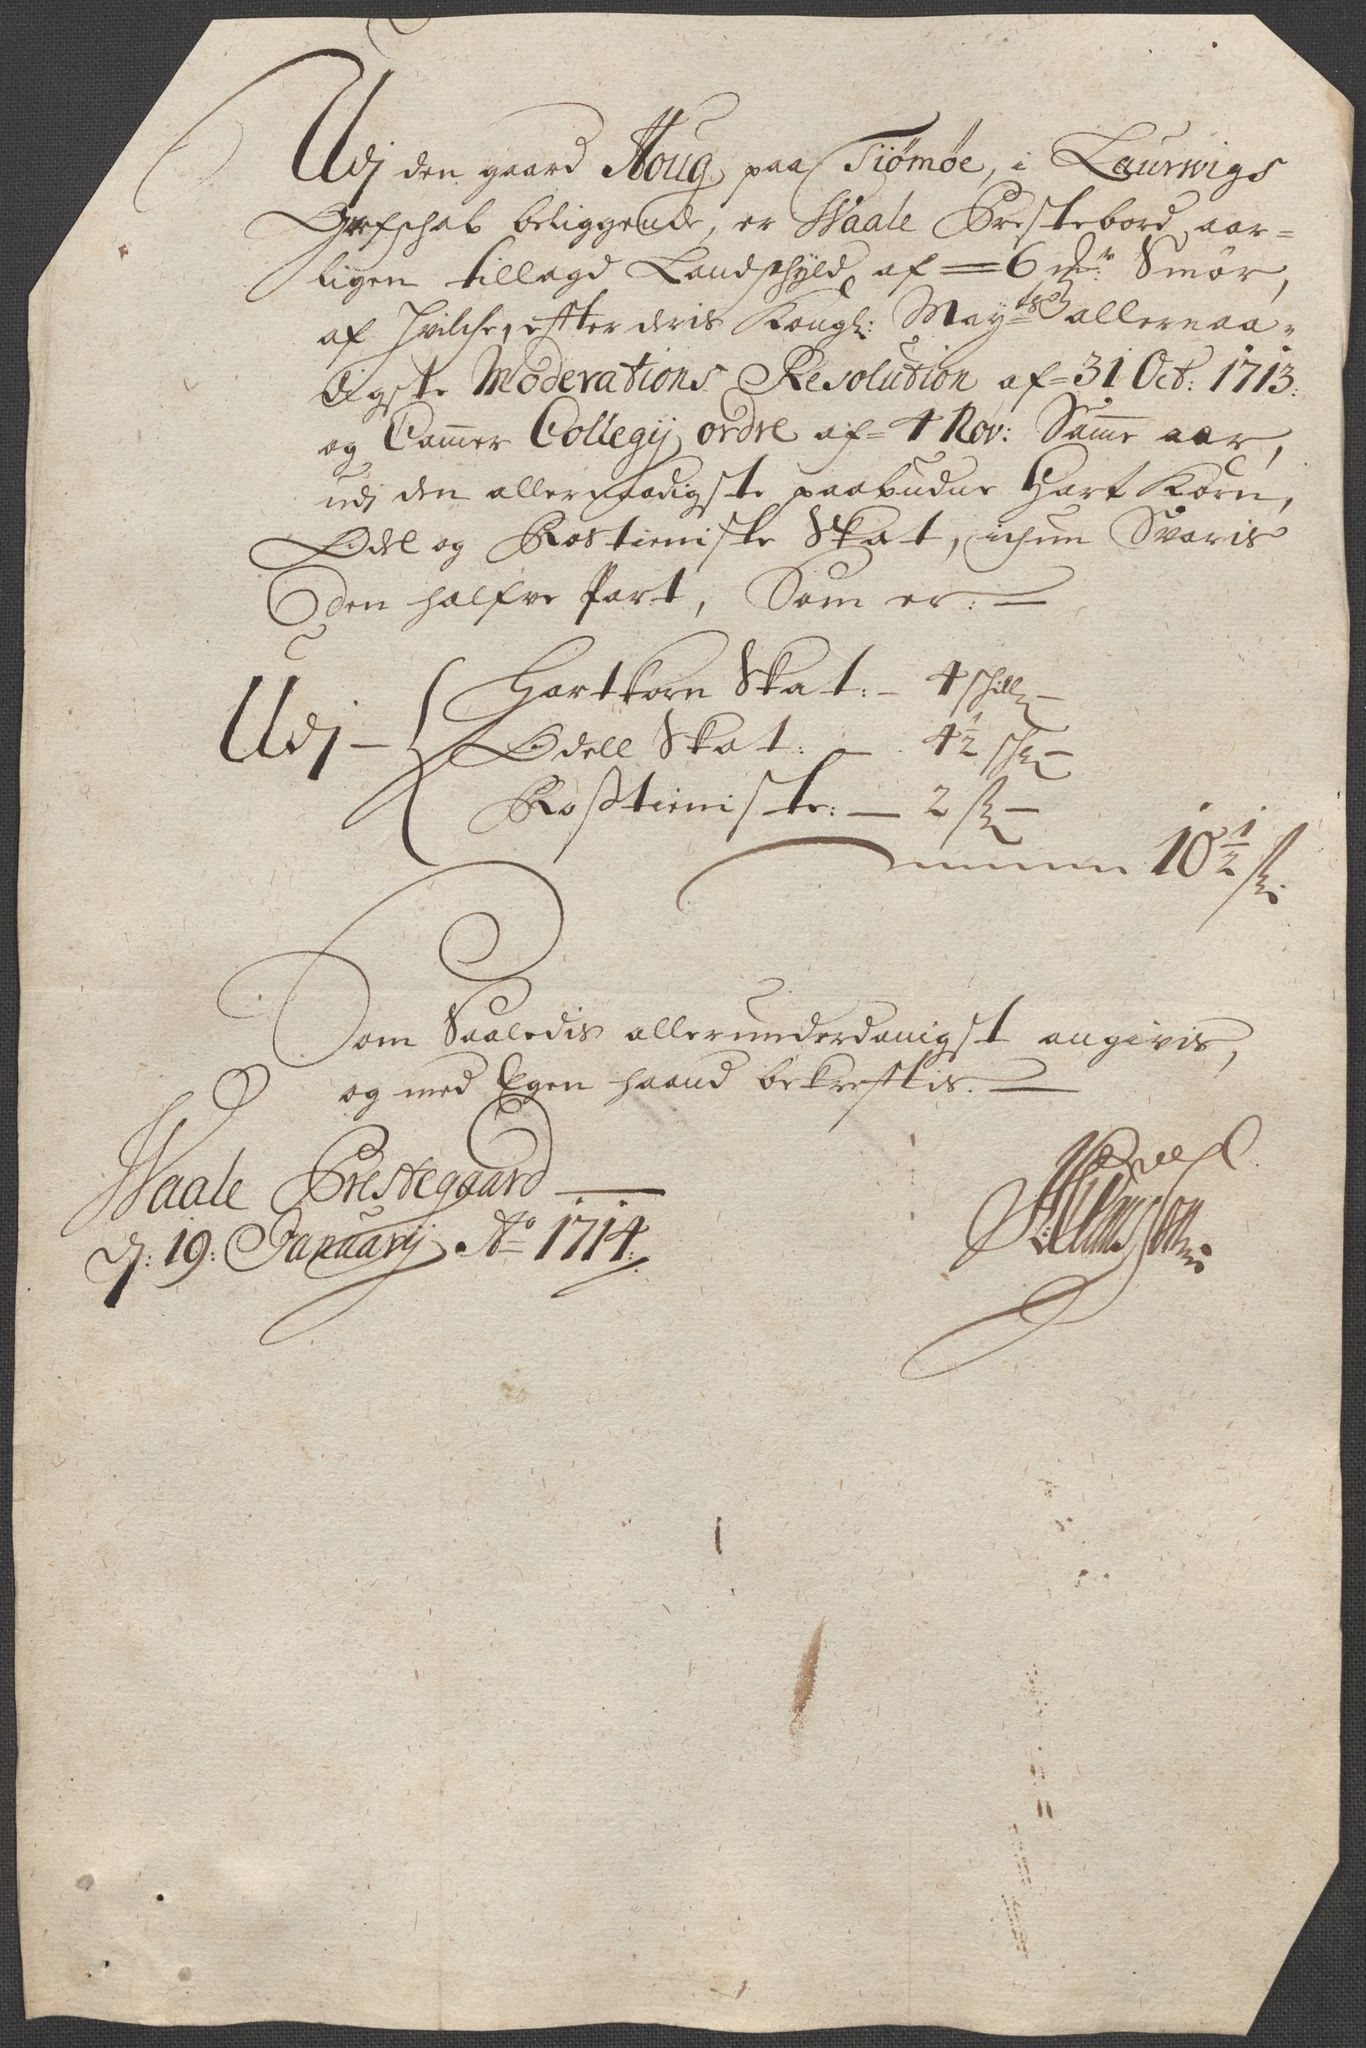 Udj den gaard Houg, paa Tiømøe, i Laurwigs
Grefschab beliggende, er Waale Prestebord aar=
ligen tillagd Landschyld af = 6 Smør,
af hvilche, efter deris Kongl: May:tts allernaa=
digste Moderations Resolution af 31 Oct: 1713.
og Cammer Collegij ordre af 4 Nov: Samme aar,
udj den allernaadigste paabudne Hart Korn,
Odel og Rostieniste Skat, ichun Svaris
den halfve Part, Som er: —
Udj — { Hartkorn Skat: — 4 schill —
Odell Skat: — 4 1/2 sch —
Rostieniste: — 2 s —
10 1/2 s.
Som Saaledis allerunderdanigst angivis,
og med Egen haand bekreftis. —
Waale Prestegaard —
d: 19: Januarij Ao 1714.